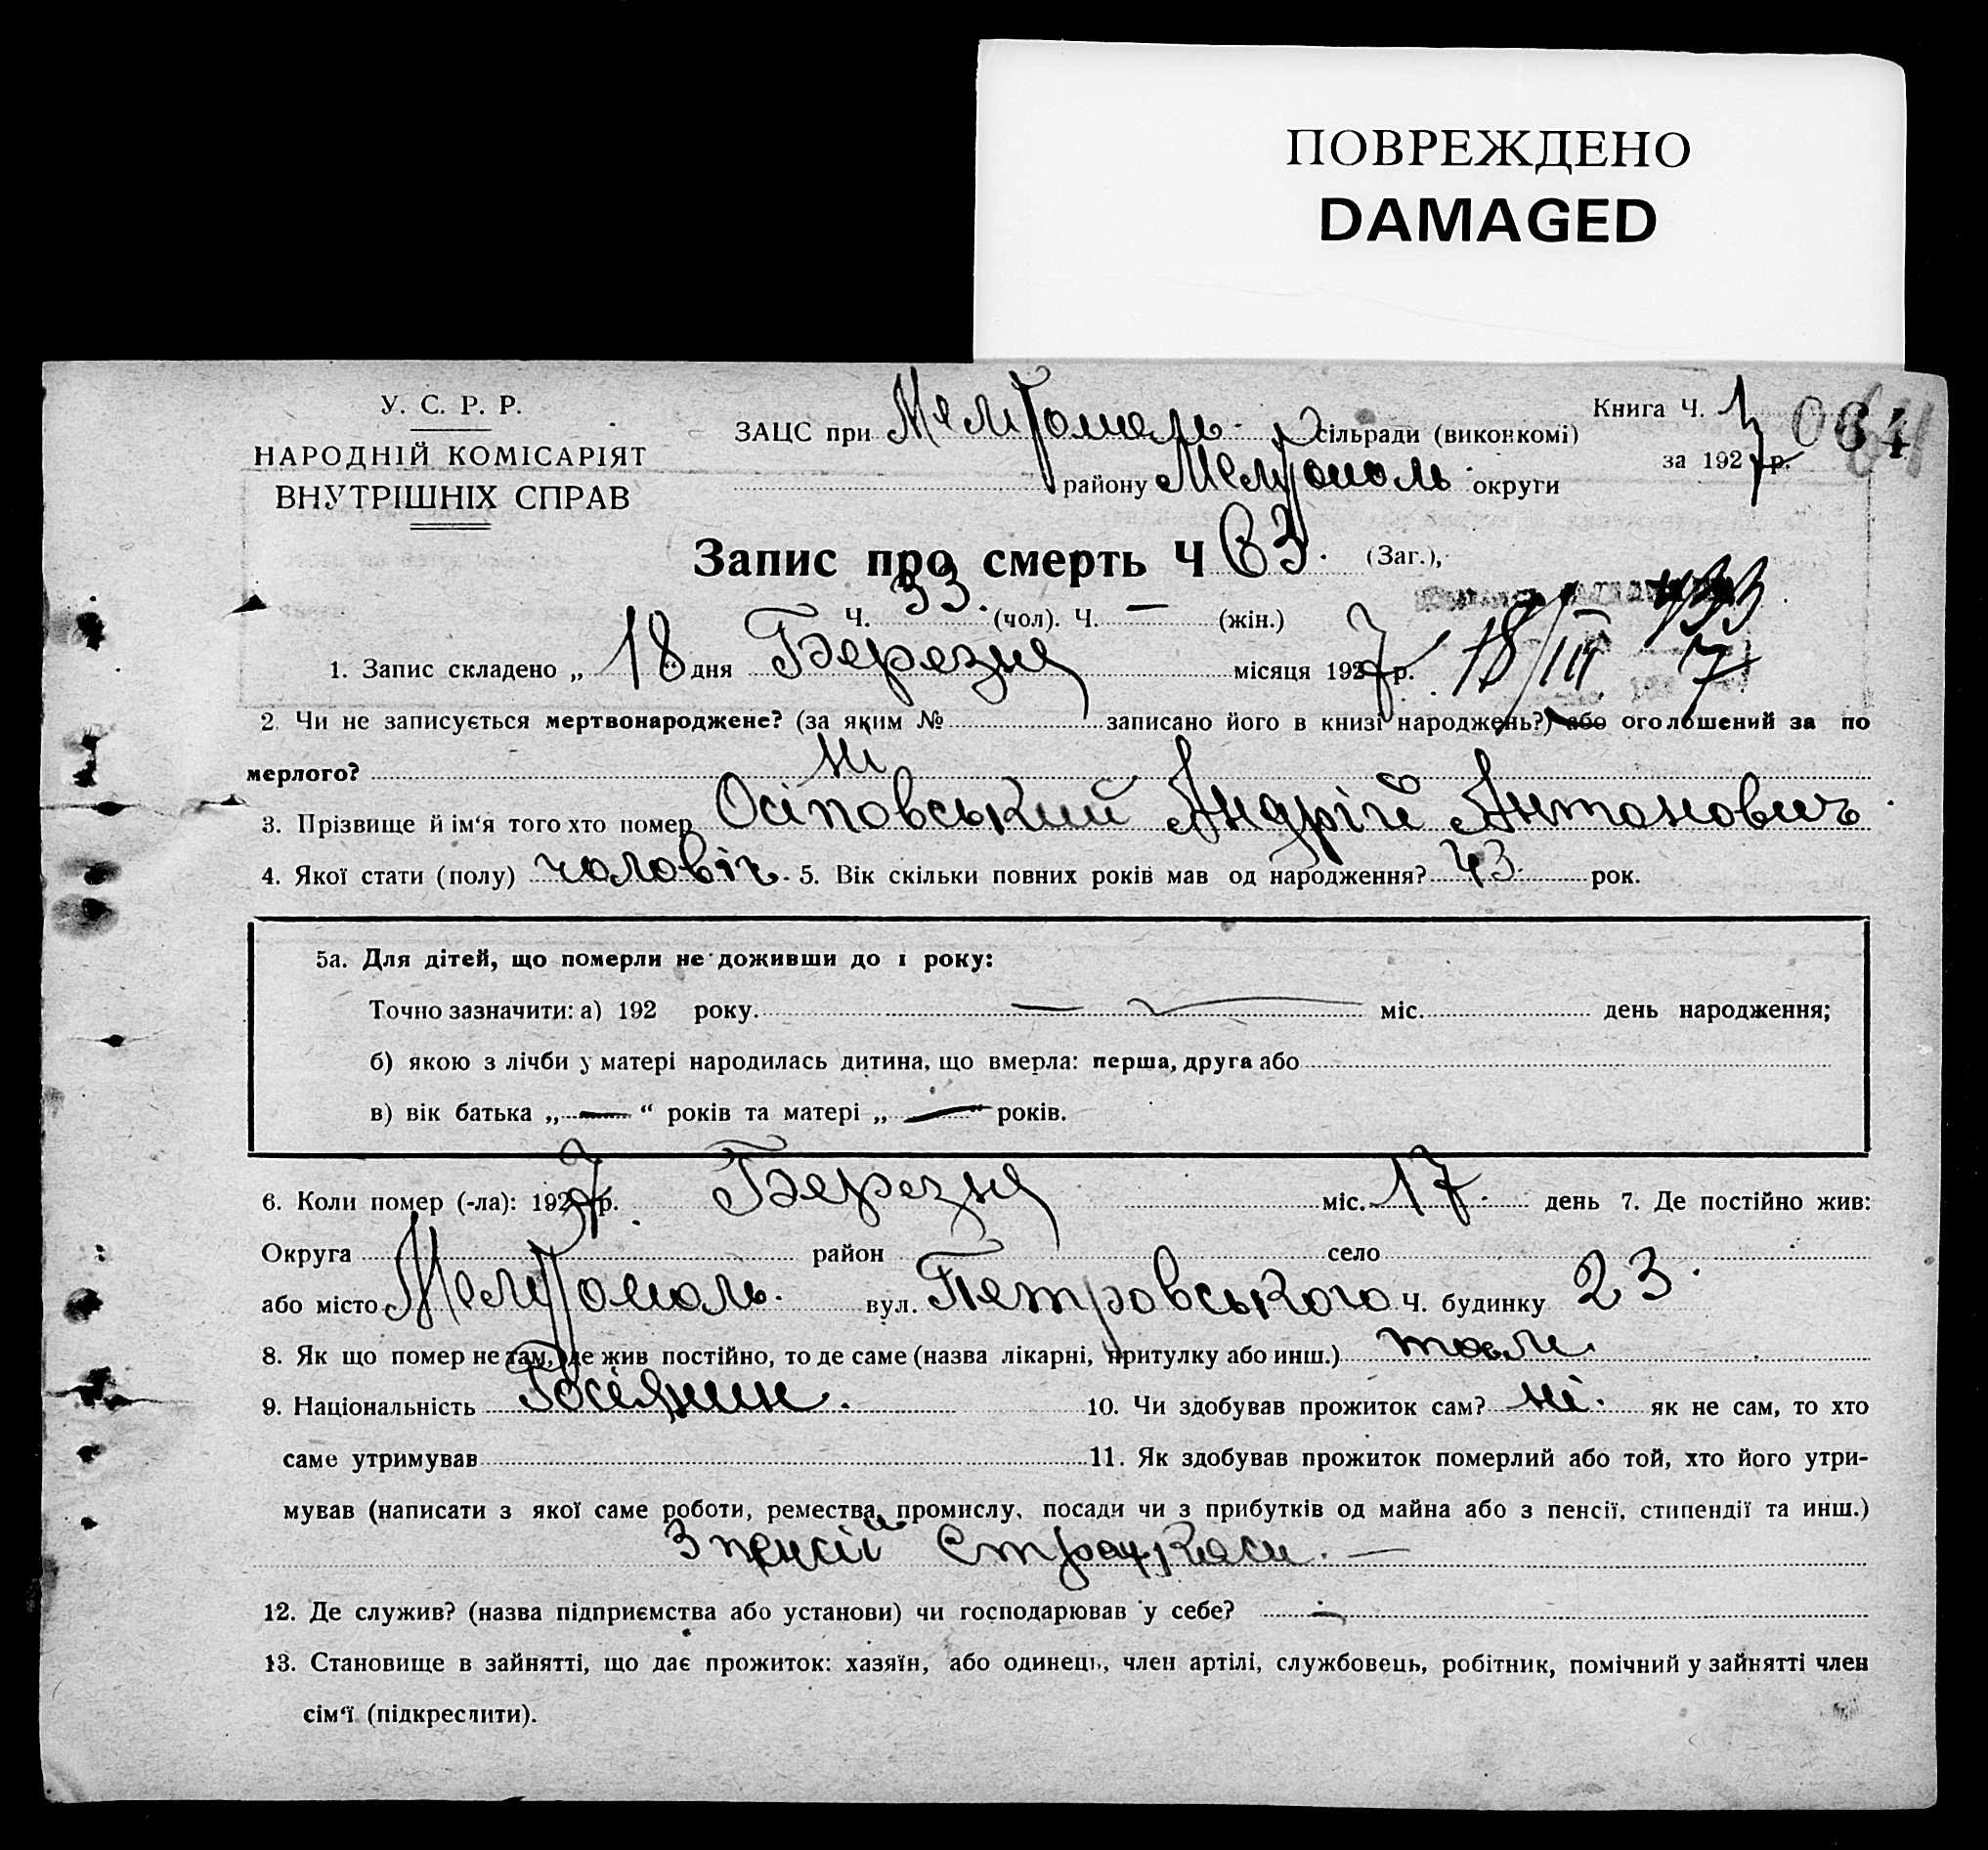 ПОВРЕЖДЕНО
DAMAGED
У. С. Р. Р.
НАРОДНІЙ КОМІСАРІЯТ
ВНУТРІШНІХ СПРАВ
ЗАЦС при Мелітополь сільради (виконкомі)
району Мелітополь округи
Книга Ч. 1
за 1927 р.
064
Запис про смерть Ч 63. (Заг.),
Ч. 33. (чол). Ч. — (жін.)
1. Запис складено „ 18 “ дня Березня місяця 1927 р. 18/III 7
2. Чи не записується мертвонароджене? (за яким № записано його в книзі народжень?) або оголошений за по
мерлого? ні
3. Прізвище й ім‘я того хто помер Осіповський Андрій Антонович
4. Якої стати (полу) чоловіч. 5. Вік скільки повних років мав од народження? 43 рок.
5а. Для дітей, що померли не доживши до 1 року:
Точно зазначити: а) 192 року. — міс. день народження;
б) якою з лічби у матері народилась дитина, що вмерла: перша, друга або
в) вік батька „ — “ років та матері „ — “ років.
6. Коли помер (-ла): 1927 р. Березня міс. 17 день 7. Де постійно жив:
Округа район село
або місто Мелітополь. вул. Петровського Ч. будинку 23.
8. Як що помер не там, де жив постійно, то де саме (назва лікарні, притулку або инш.) там.
9. Національність Росіянин. 10. Чи здобував прожиток сам? ні. як не сам, то хто
саме утримував 11. Як здобував прожиток померлий або той, хто його утри-
мував (написати з якої саме роботи, ремества, промислу, посади чи з прибутків од майна або з пенсії, стипендії та инш.)
З пенсії Страхкаси. —
12. Де служив? (назва підприємства або установи) чи господарював у себе? —
13. Становище в зайнятті, що дає прожиток: хазяїн, або одинець, член артілі, службовець, робітник, помічний у зайнятті член
сім‘ї (підкреслити).